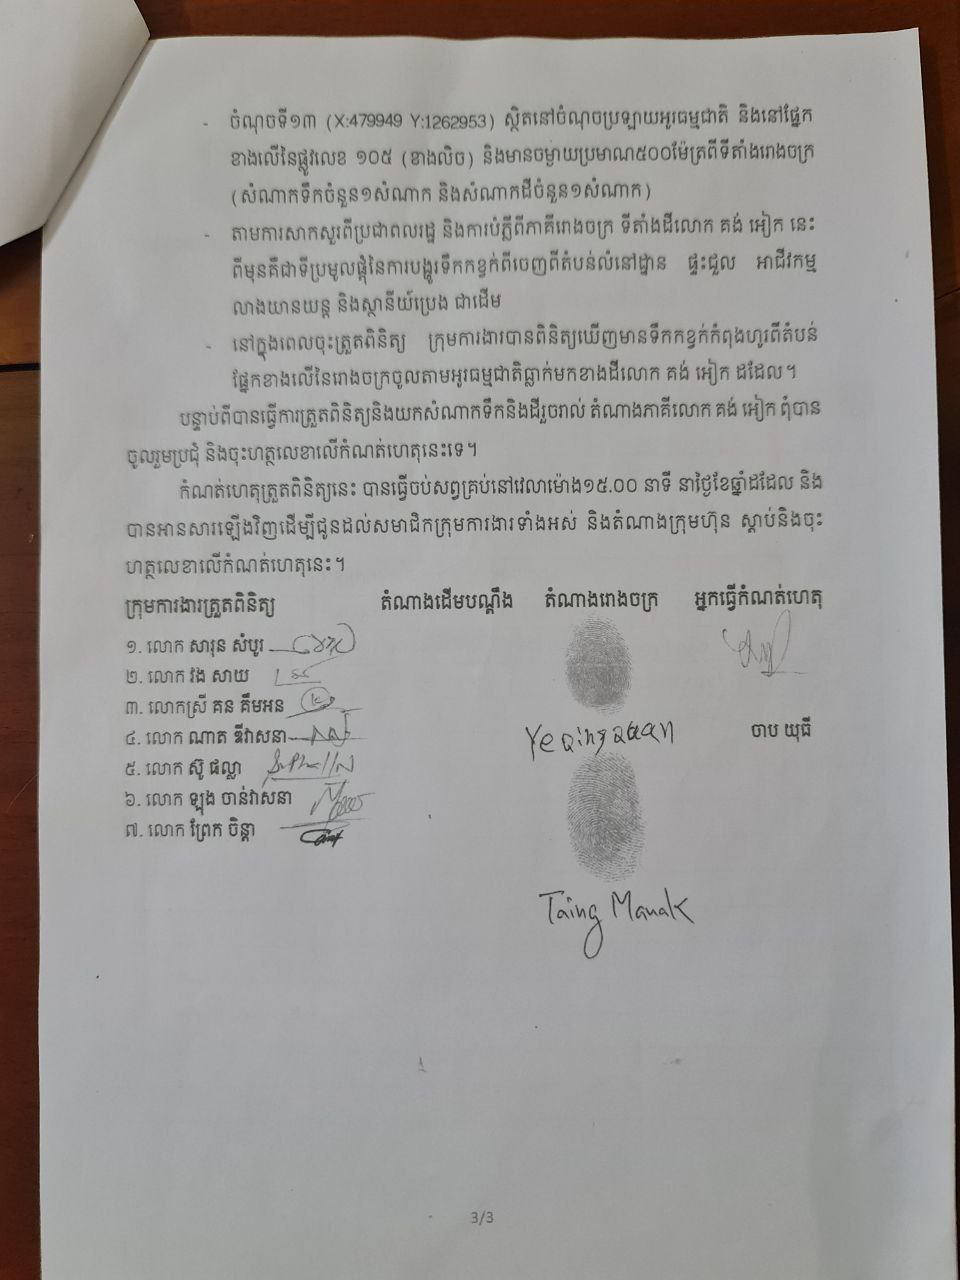 - ចំណុចទី១៣ (X:479949 Y:1262953) ស្ថិតនៅចំណុចប្រឡាយអូរធម្មជាតិ និងនៅផ្នែក
ខាងលើនៃផ្លូវលេខ ១០៥ (ខាងលិច) និងមានចម្ងាយប្រមាណ៥០០ម៉ែត្រពីទីតាំងរោងចក្រ
(សំណាកទឹកចំនួន១សំណាក និងសំណាកដីចំនួន១សំណាក)
- តាមការសាកសួរពីប្រជាពលរដ្ឋ និងការបំភ្លឺពីភាគីរោងចក្រ ទីតាំងដីលោក គង់ អៀក នេះ
ពីមុនគឺជាទីប្រមូលផ្ដុំនៃការបង្ហូរទឹកកខ្វក់ពីចេញពីតំបន់លំនៅដ្ឋាន ផ្ទះជួល អាជីវកម្ម
លាងយានយន្ត និងស្ថានីយ៍ប្រេង ជាដើម
- នៅក្នុងពេលចុះត្រួតពិនិត្យ ក្រុមការងារបានពិនិត្យឃើញមានទឹកកខ្វក់កំពុងហូរពីតំបន់
ផ្នែកខាងលើនៃរោងចក្រចូលតាមអូរធម្មជាតិធ្លាក់មកខាងដីលោក គង់ អៀក ដដែល។
បន្ទាប់ពីបានធ្វើការត្រួតពិនិត្យនិងយកសំណាកទឹកនិងដីរួចរាល់ តំណាងភាគីលោក គង់ អៀក ពុំបាន
ចូលរួមប្រជុំ និងចុះហត្ថលេខាលើកំណត់ហេតុនេះទេ។
កំណត់ហេតុត្រួតពិនិត្យនេះ បានធ្វើចប់សព្វគ្រប់នៅវេលាម៉ោង១៥.00 នាទី នាថ្ងៃខែឆ្នាំដដែល និង
បានអានសារឡើងវិញដើម្បីជូនដល់សមាជិកក្រុមការងារទាំងអស់ និងតំណាងក្រុមហ៊ុន ស្ដាប់និងចុះ
ហត្ថលេខាលើកំណត់ហេតុនេះ។
ក្រុមការងារត្រួតពិនិត្យ តំណាងដើមបណ្ដឹង តំណាងរោងចក្រ អ្នកធ្វើកំណត់ហេតុ
១. លោក សារុន សំបូរ
២. លោក វង សាយ
៣. លោកស្រី គន គឹមអន
៤. លោក ណាត ឌីវាសនា
៥. លោក ស៊ូ ផល្លា
៦. លោក ឡុង ចាន់វាសនា
៧. លោក ព្រែក ចិន្តា
ចាប យុធី
Taing Manak
3/3